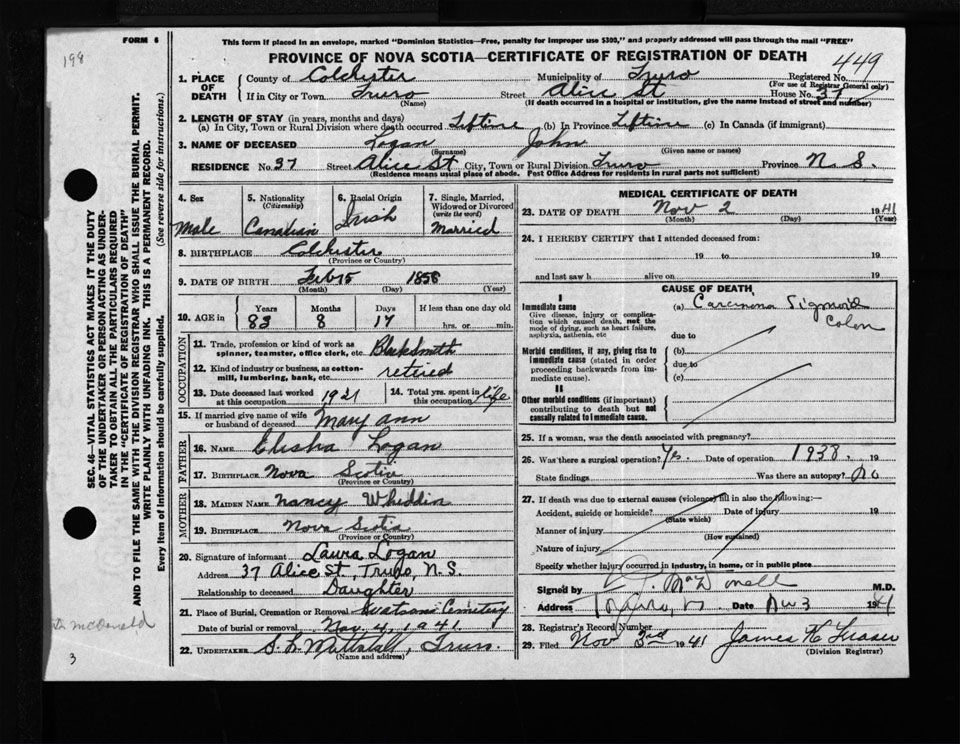 199
FORM 6
This form if placed in an envelope, marked "Dominion Statistics—Free, penalty for improper use $300," and properly addressed will pass through the mail "FREE"
PROVINCE OF NOVA SCOTIA—CERTIFICATE OF REGISTRATION OF DEATH
449
1. PLACE OF DEATH
County of Colchester Municipality of Truro Registered No.
(For use of Registrar General only)
If in City or Town Truro Street Alice St House No. 37
(Name) (If death occurred in a hospital or institution, give the name instead of street and number)
2. LENGTH OF STAY (in years, months and days)
(a) In City, Town or Rural Division where death occurred Liftime (b) In Province Liftime (c) In Canada (if immigrant)
3. NAME OF DECEASED Logan John
(Surname) (Given name or names)
RESIDENCE No. 37 Street Alice St City, Town or Rural Division Truro Province N. S.
(Residence means usual place of abode. Post Office Address for residents in rural parts not sufficient)
4. Sex
Male
5. Nationality
(Citizenship)
Canadian
6. Racial Origin
Irish
7. Single, Married, Widowed or Divorced
(write the word)
Married
8. BIRTHPLACE Colchester
(Province or Country)
9. DATE OF BIRTH Feb 15 1858
(Month) (Day) (Year)
10. AGE in
Years Months Days If less than one day old
83 8 17 hrs. or min.
OCCUPATION
11. Trade, profession or kind of work as spinner, teamster, office clerk, etc. Blacksmith
12. Kind of industry or business, as cotton-mill, lumbering, bank, etc. retired
13. Date deceased last worked at this occupation 1921
14. Total yrs. spent in this occupation life
15. If married give name of wife or husband of deceased Mary Ann
FATHER
16. NAME Elisha Logan
17. BIRTHPLACE Nova Scotia
(Province or Country)
MOTHER
18. MAIDEN NAME Nancy Wheddin
19. BIRTHPLACE Nova Scotia
(Province or Country)
20. Signature of informant Laura Logan
Address 37 Alice St., Truro, N. S.
Relationship to deceased Daughter
21. Place of Burial, Cremation or Removal Watsons Cemetery
Date of burial or removal Nov. 4, 1941.
22. UNDERTAKER S. L. Mattatall, Truro.
(Name and address)
MEDICAL CERTIFICATE OF DEATH
23. DATE OF DEATH Nov 2 1941
(Month) (Day) (Year)
24. I HEREBY CERTIFY that I attended deceased from:
19 to 19
and last saw h alive on 19
CAUSE OF DEATH
I
Immediate cause (a) Carcinoma Sigmoid Colon
Give disease, injury or complication which caused death, not the mode of dying, such as heart failure, asphyxia, asthenia, etc
due to
Morbid conditions, if any, giving rise to immediate cause (stated in order proceeding backwards from immediate cause).
(b)
due to
(c)
II
Other morbid conditions (if important) contributing to death but not causally related to immediate cause.
25. If a woman, was the death associated with pregnancy?
26. Was there a surgical operation? Yes. Date of operation 1938. 19
State findings Was there an autopsy? No
27. If death was due to external causes (violence) fill in also the following:—
Accident, suicide or homicide? Date of injury 19
(State which)
Manner of injury
(How sustained)
Nature of injury
Specify whether injury occurred in industry, in home, or in public place
Signed by McDonell M.D.
Address Date Nov 3 1941
28. Registrar's Record Number
29. Filed Nov 3rd 1941 James K Fraser
(Division Registrar)
SEC. 46—VITAL STATISTICS ACT MAKES IT THE DUTY
OF THE UNDERTAKER OR PERSON ACTING AS UNDER-
TAKER TO OBTAIN ALL THE PARTICULARS REQUIRED
IN THE "CERTIFICATE OF REGISTRATION OF DEATH"
AND TO FILE THE SAME WITH THE DIVISION REGISTRAR WHO SHALL ISSUE THE BURIAL PERMIT.
WRITE PLAINLY WITH UNFADING INK. THIS IS A PERMANENT RECORD.
Every item of information should be carefully supplied. (See reverse side for instructions.)
Dr McDonald
3